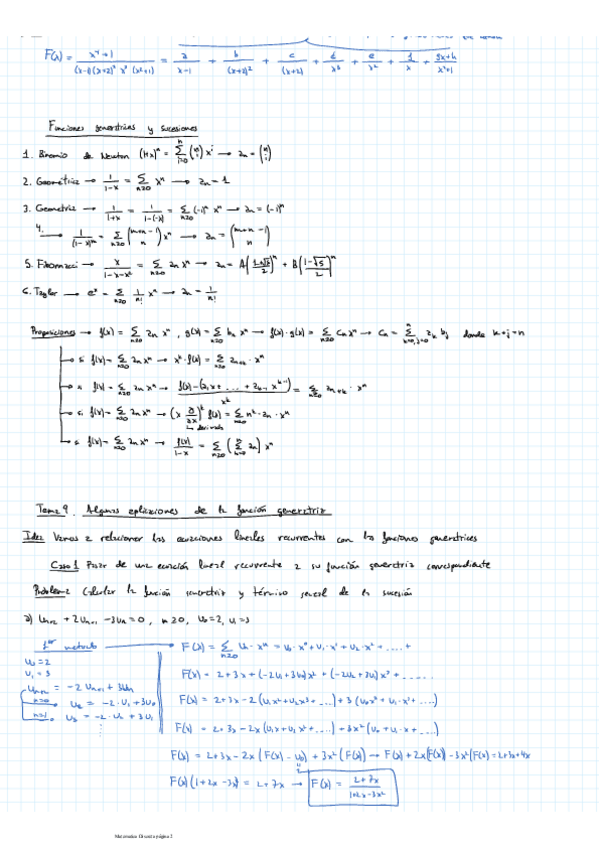 F(x) = x⁴+1 / (x-1)(x+2)² x³ (x²+1) = a/x-1 + b/(x+2)² + c/(x+2) + d/x³ + e/x² + f/x + gx+h/x²+1
Funciones generatrices y sucesiones
1. Binomio de Newton (1+x)ⁿ = Σ (n i) xⁱ → an = (n i)
2. Geométrica → 1/1-x = Σ n≥0 xⁿ → an = 1
3. Geometrica → 1/1+x = 1/1-(-x) = Σ n≥0 (-1)ⁿ xⁿ → an = (-1)ⁿ
4. → 1/(1-x)ᵐ = Σ n≥0 (m+n-1 n) xⁿ → an = (m+n-1 n)
5. Fibonacci → x/1-x-x² = Σ n≥0 an xⁿ → an = A(1+√5/2)ⁿ + B(1-√5/2)ⁿ
6. Taylor → eˣ = Σ n≥0 1/n! xⁿ → an = 1/n!
Proposiciones → f(x) = Σ n≥0 an xⁿ , g(x) = Σ n≥0 bn xⁿ → f(x)·g(x) = Σ n≥0 Cn xⁿ → Cn = Σ k=0, j=0 ak bj donde k+j=n
→ si f(x) = Σ n≥0 an xⁿ → xᵏ·f(x) = Σ n≥0 an+k · xⁿ
→ si f(x) = Σ n≥0 an xⁿ → f(x)-(a₁x+ ... + ak-1 xᵏ⁻¹) / xᵏ = Σ n≥0 an+k · xⁿ
→ si f(x) = Σ n≥0 an xⁿ → (x ∂/∂x)² f(x) = Σ n≥0 n²·an·xⁿ
↳ derivada
→ si f(x) = Σ n≥0 an xⁿ → f(x)/1-x = Σ n≥0 (Σ k=0 an) xⁿ
Tema 9. Algunas aplicaciones de la función generatriz
Idea Vamos a relacionar las ecuaciones lineales recurrentes con las funciones generatrices
Caso 1 Pasar de una ecuación lineal recurrente a su función generatriz correspondiente
Problema Calcular la función generatriz y término general de la sucesión
a) Un+2 + 2Un+1 - 3Un = 0 , n≥0, U₀=2, U₁=3
1er metodo → F(x) = Σ n≥0 Un·xⁿ = U₀·x⁰ + U₁·x¹ + U₂·x² + .... +
U₀ = 2
U₁ = 3
F(x) = 2+3x + (-2U₁+3U₀)x² + (-2U₂+3U₁)x³ + ......
Un+2 = -2Un+1 + 3Un
n=0 → U₂ = -2·U₁ + 3U₀
F(x) = 2+3x - 2(U₁x²+U₂x³+ ...) + 3(U₀x²+U₁·x³+ ....)
n=1 → U₃ = -2·U₂ + 3U₁
F(x) = 2+3x - 2x(U₁x+U₂x²+ ....) + 3x²(U₀+U₁·x+ ...)
F(x) = 2+3x-2x(F(x)-U₀) + 3x²(F(x)) → F(x)+2x(F(x))-3x²(F(x)) = 2+3x+4x
F(x)(1+2x-3x²) = 2+7x → F(x) = 2+7x / 1+2x-3x²